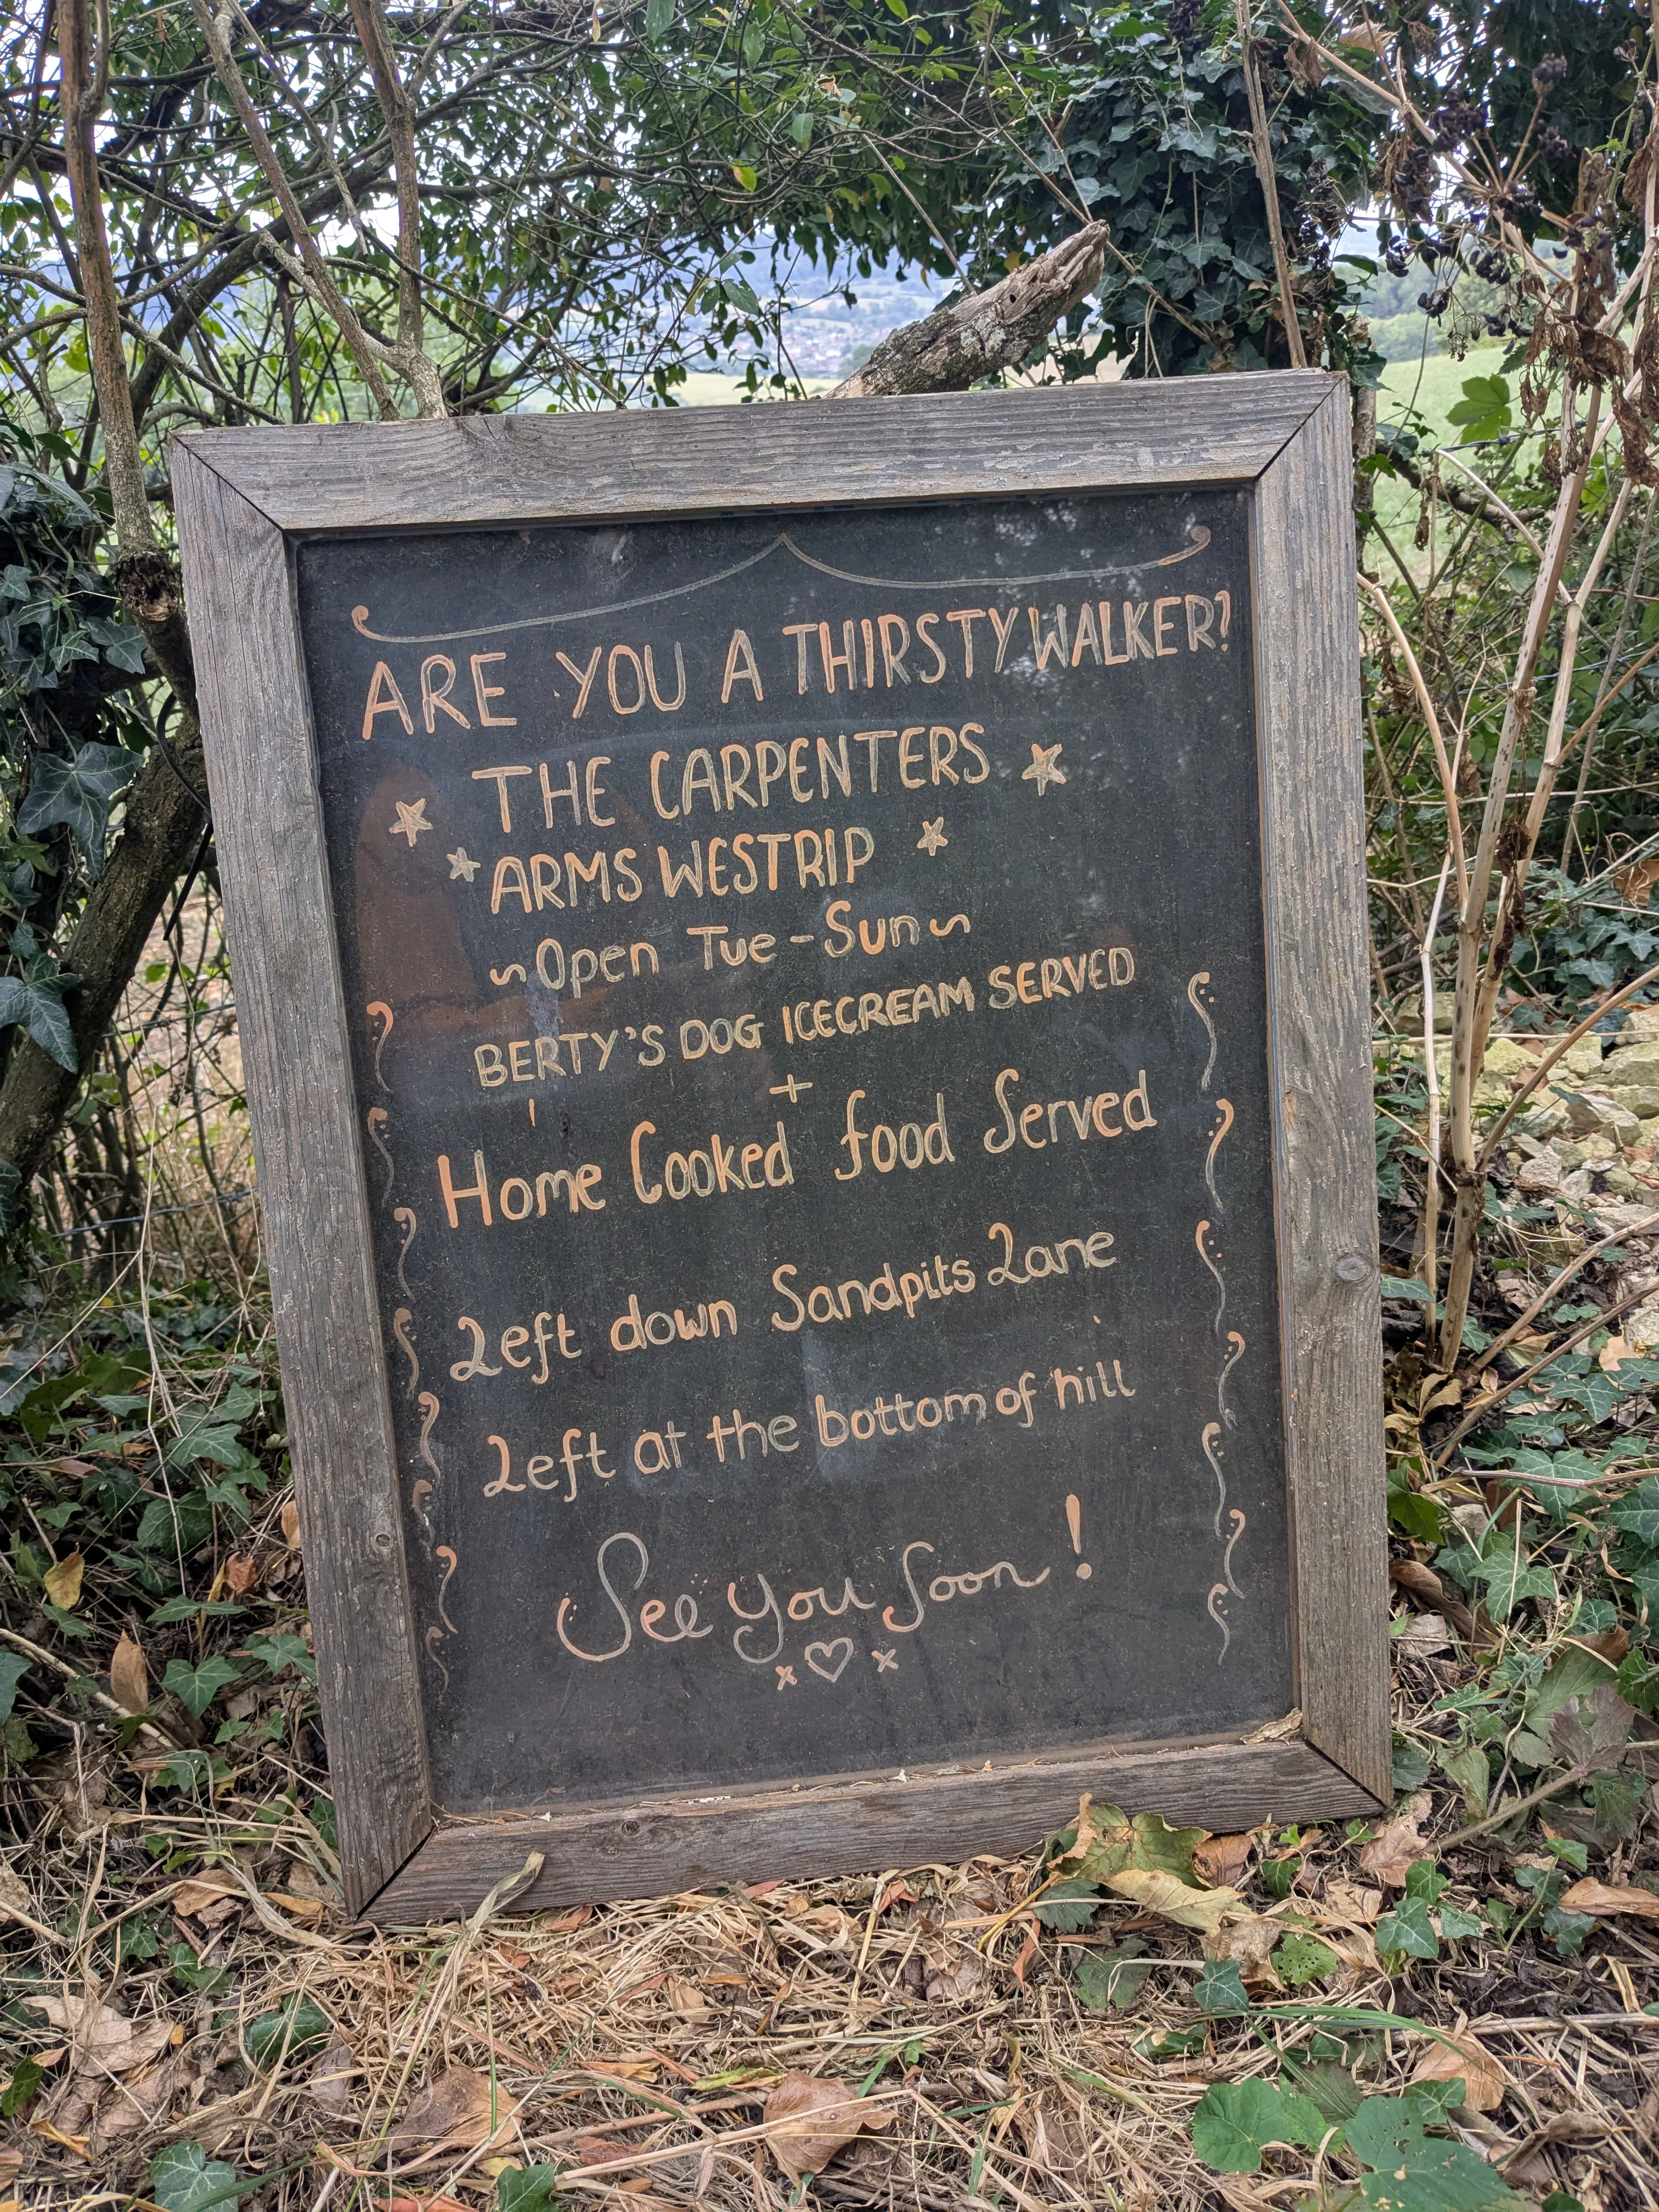 ARE YOU A THIRSTY WALKER?
THE CARPENTERS
ARMS WESTRIP
~Open Tue-Sun~
BERTY'S DOG ICECREAM SERVED
+
Home Cooked food Served
Left down Sandpits Lane
Left at the bottom of hill
See you Soon!
x♡x